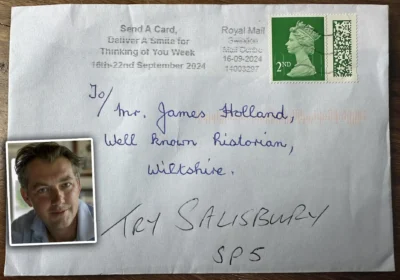 Send A Card,
Deliver A Smile for
Thinking of You Week
16th-22nd September 2024
Royal Mail
Swindon
Mail Centre
16-09-2024
2ND
To/
Mr. James Holland,
Well known historian,
Wiltshire.
TRY SALISBURY
SP5